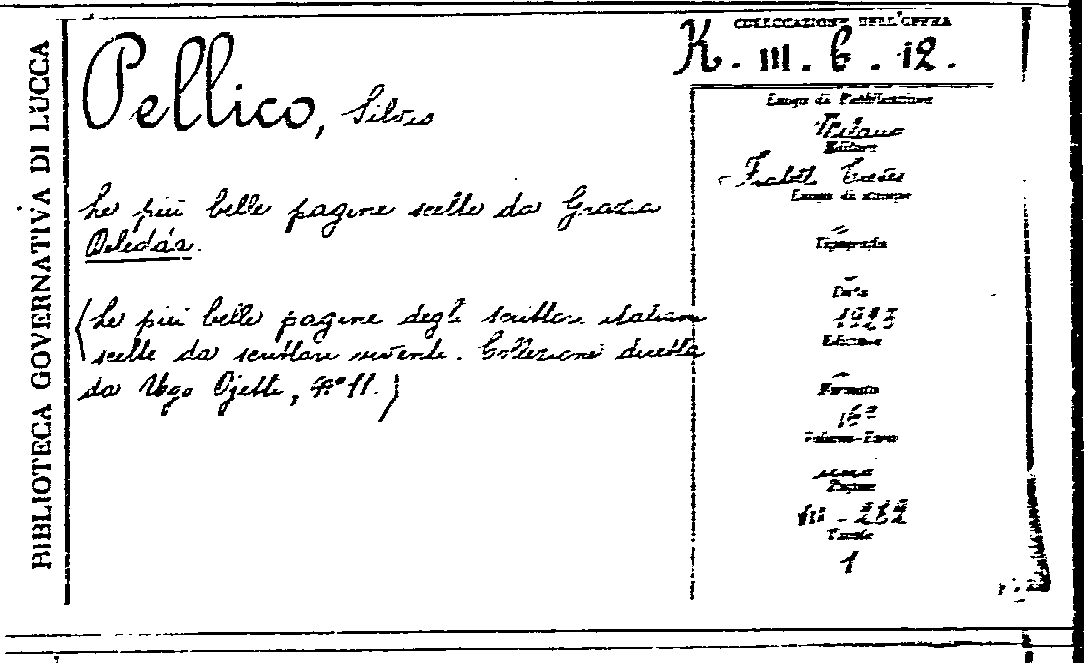 BIBLIOTECA GOVERNATIVA DI LUCCA
COLLOCAZIONE DELL'OPERA
K. III. 6. 12.
Pellico, Silvio
Le più belle pagine scelte da Grazia
Deledda.
(Le più belle pagine degli scrittori italiani
scelte da scrittori viventi. Collezione diretta
da Ugo Ojetti, n° 11.)
Luogo di Pubblicazione
Milano
Editore
Fratelli Treves
Luogo di stampa
Tipografia
Data
1923
Edizione
Formato
16°
Volume-Tomo
Pagine
VII - 282
Tavole
1